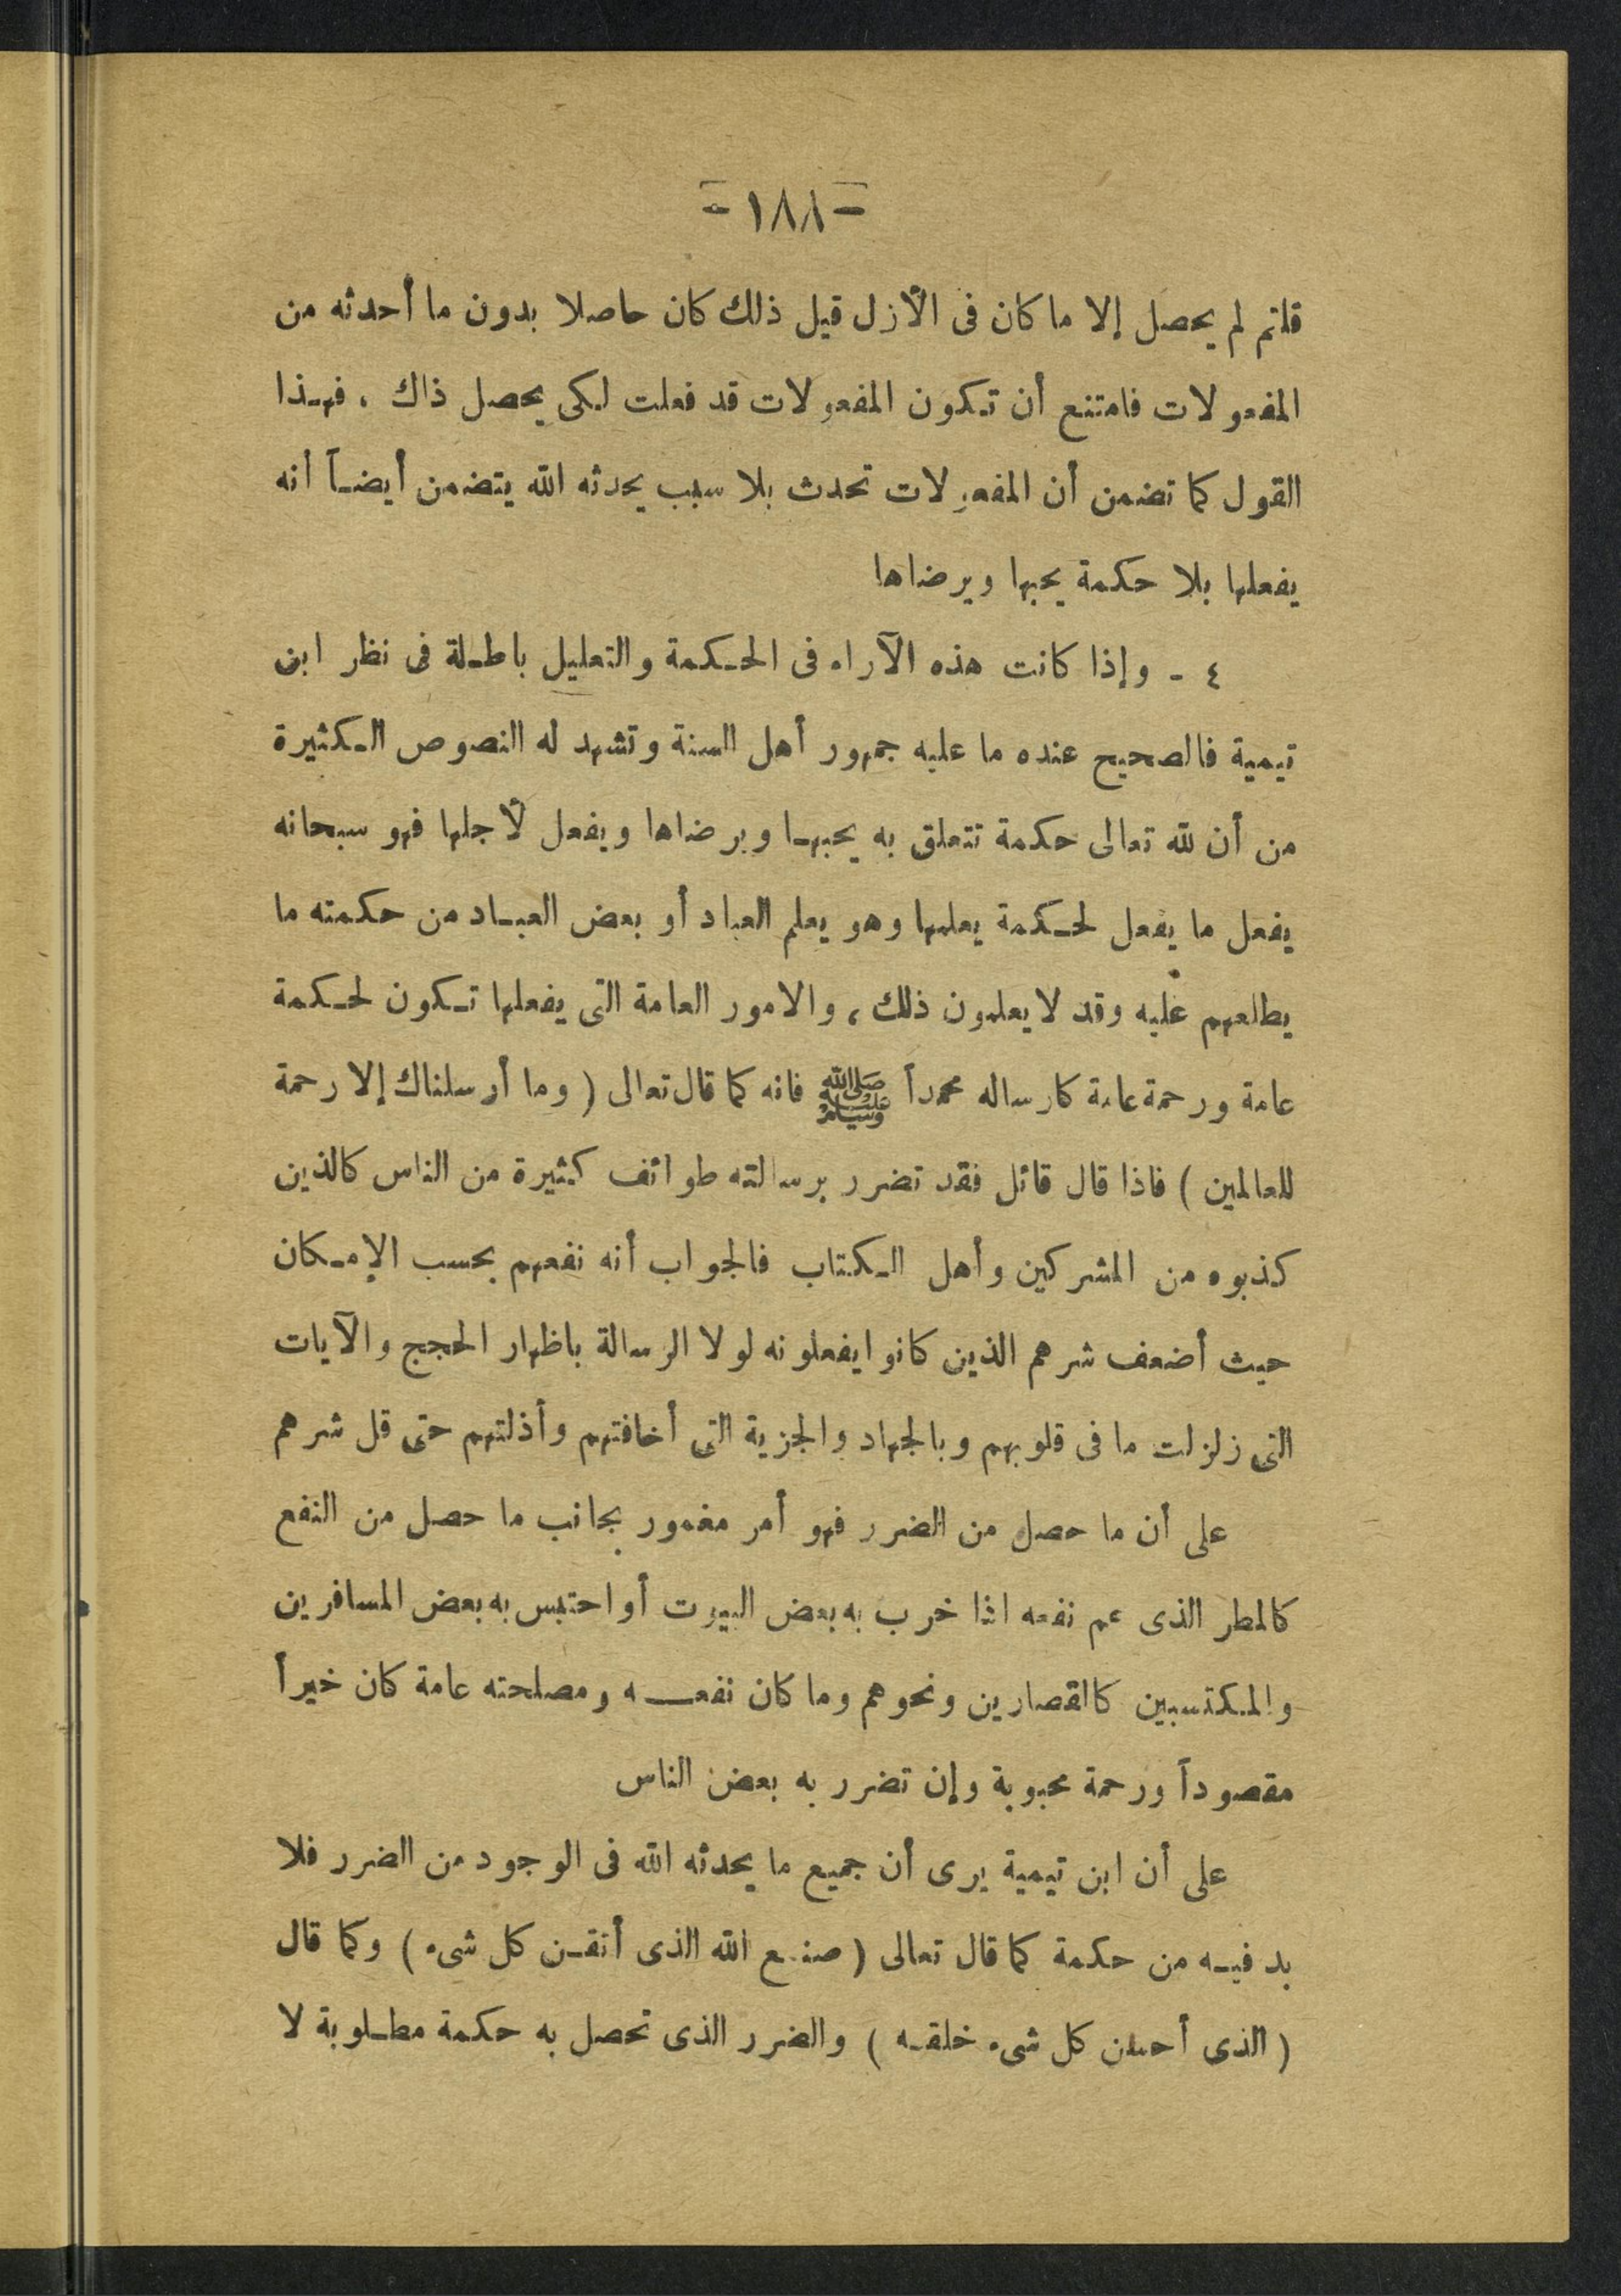 - ١٨٨ -
قلتم لم يحصل إلا ما كان فى الأزل قيل ذلك كان حاصلا بدون ما أحدثه من
المفعولات فامتنع أن تكون المفعولات قد فعلت لكى يحصل ذاك ، فهذا
القول كما تضمن أن المفعولات تحدث بلا سبب يحدثه الله يتضمن أيضاً أنه
يفعلها بلا حكمة يحبها ويرضاها
٤ - وإذا كانت هذه الآراء فى الحكمة والتعليل باطلة فى نظر ابن
تيمية فالصحيح عنده ما عليه جمهور أهل السنة وتشهد له النصوص الكثيرة
من أن لله تعالى حكمة تتعلق به يحبها ويرضاها ويفعل لأجلها فهو سبحانه
يفعل ما يفعل لحكمة يعلمها وهو يعلم العباد أو بعض العباد من حكمته ما
يطلعهم عليه وقد لا يعلمون ذلك ، والامور العامة التى يفعلها تكون لحكمة
عامة ورحمة عامة كارساله محمداً ﷺ فانه كما قال تعالى ( وما أرسلناك إلا رحمة
للعالمين ) فاذا قال قائل فقد تضرر برسالته طوائف كثيرة من الناس كالذين
كذبوه من المشركين وأهل الكتاب فالجواب أنه نفعهم بحسب الإمكان
حيث أضعف شرهم الذين كانوا يفعلونه لولا الرسالة باظهار الحجج والآيات
التى زلزلت ما فى قلوبهم وبالجهاد والجزية التى أخافتهم وأذلتهم حتى قل شرهم
على أن ما حصل من الضرر فهو أمر مغمور بجانب ما حصل من النفع
كالمطر الذى عم نفعه اذا خرب به بعض البيوت أو احتبس به بعض المسافرين
والمكتسبين كالقصارين ونحوهم وما كان نفعه ومصلحته عامة كان خيراً
مقصوداً ورحمة محبوبة وإن تضرر به بعض الناس
على أن ابن تيمية يرى أن جميع ما يحدثه الله فى الوجود من الضرر فلا
بد فيه من حكمة كما قال تعالى ( صنع الله الذى أتقن كل شىء ) وكما قال
( الذى أحسن كل شىء خلقه ) والضرر الذى تحصل به حكمة مطلوبة لا